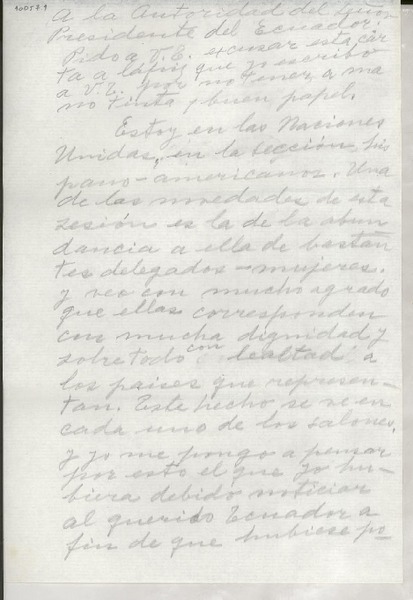 A la Autoridad del Gran
Presidente del Ecuador.
Pido a V.E. excusar esta car
ta a lápiz que yo escribo
a V.E. por no tener, a ma
no tinta y buen papel.
Estoy en las Naciones
Unidas, en la Sección his
pano-americanos. Una
de las novedades de esta
sesión es la de la abun
dancia a ella de bastan
tes delegados-mujeres.
y veo con mucho agrado
que ellas corresponden
con mucha dignidad y
sobre todo con lealtad a
los países que represen-
tan. Este hecho se ve en
cada uno de los salones.
y yo me pongo a pensar
por esto el que yo hu-
biera debido noticiar
al querido Ecuador a
fin de que hubiese po-